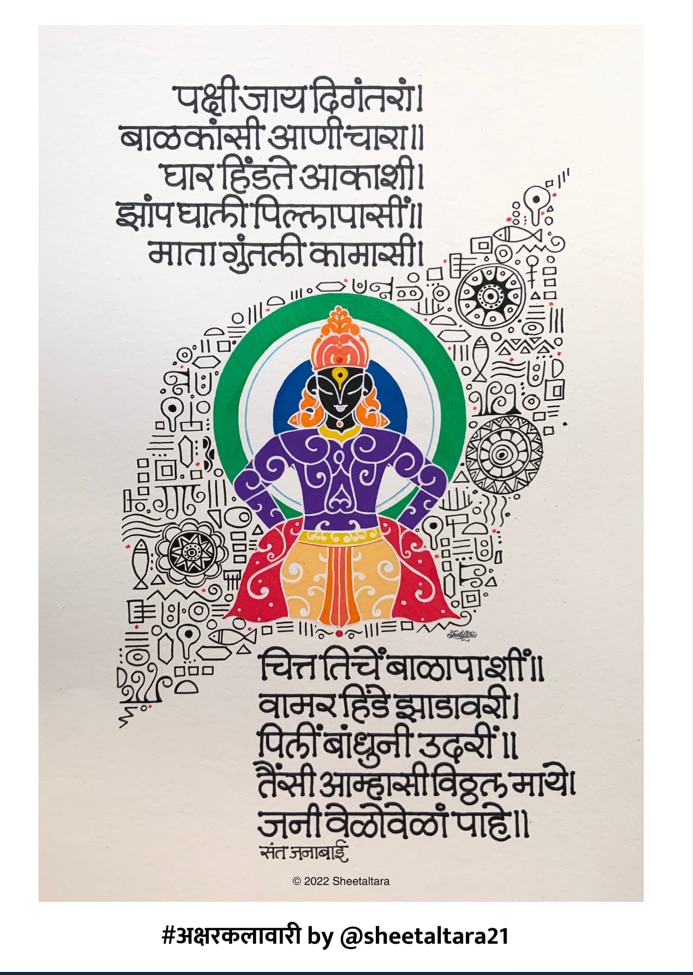 पक्षी जाय दिगंतरां।
बाळकांसी आणी चारा॥
घार हिंडते आकाशी।
झांप घाली पिल्लापासीं॥
माता गुंतली कामासी।
चित्त तिचें बाळापाशीं॥
वामर हिंडे झाडावरी।
पिलीं बांधुनी उदरीं॥
तैंसी आम्हासी विठ्ठल माये।
जनी वेळोवेळां पाहे॥
संत जनाबाई
© 2022 Sheetaltara
#अक्षरकलावारी by @sheetaltara21